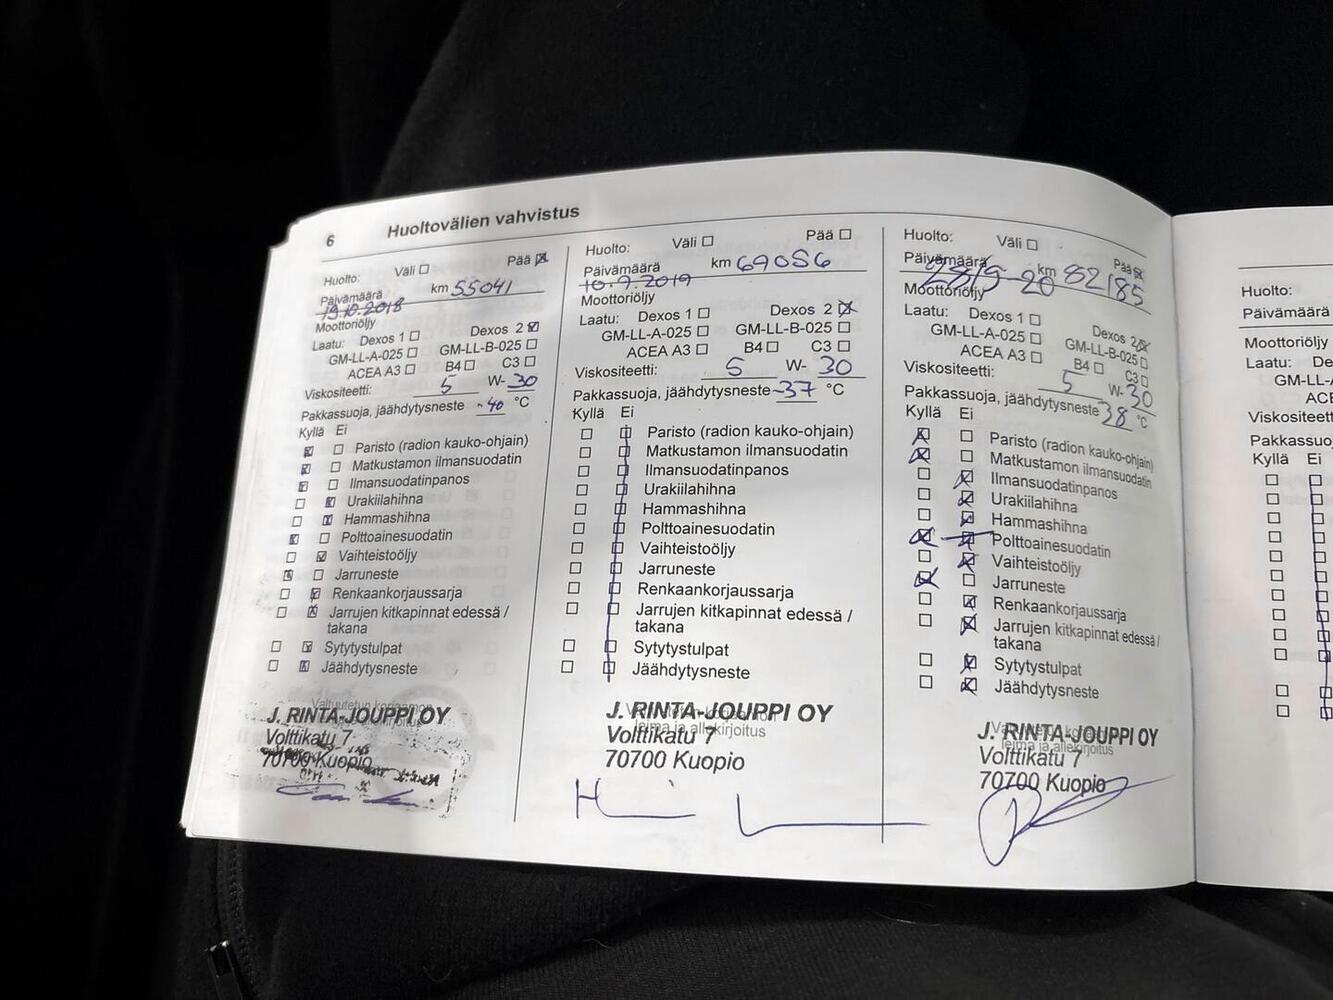 6 Huoltovälien vahvistus
Huolto: Väli Pää
Päivämäärä km 55041
19.10.2018
Moottoriöljy
Laatu: Dexos 1 Dexos 2
GM-LL-A-025 GM-LL-B-025
ACEA A3 B4 C3
Viskositeetti: 5 W- 30
Pakkassuoja, jäähdytysneste -40 °C
Kyllä Ei
Paristo (radion kauko-ohjain)
Matkustamon ilmansuodatin
Ilmansuodatinpanos
Urakiilahihna
Hammashihna
Polttoainesuodatin
Vaihteistoöljy
Jarruneste
Renkaankorjaussarja
Jarrujen kitkapinnat edessä /
takana
Sytytystulpat
Jäähdytysneste
Valtuutetun korjaamon
J. RINTA-JOUPPI OY
Volttikatu 7
70700 Kuopio
Huolto: Väli Pää
Päivämäärä km 69056
10.9.2019
Moottoriöljy
Laatu: Dexos 1 Dexos 2
GM-LL-A-025 GM-LL-B-025
ACEA A3 B4 C3
Viskositeetti: 5 W- 30
Pakkassuoja, jäähdytysneste -37 °C
Kyllä Ei
Paristo (radion kauko-ohjain)
Matkustamon ilmansuodatin
Ilmansuodatinpanos
Urakiilahihna
Hammashihna
Polttoainesuodatin
Vaihteistoöljy
Jarruneste
Renkaankorjaussarja
Jarrujen kitkapinnat edessä /
takana
Sytytystulpat
Jäähdytysneste
J. RINTA-JOUPPI OY
leima ja allekirjoitus
Volttikatu 7
70700 Kuopio
Huolto: Väli Pää
Päivämäärä km 82185
28/9-20
Moottoriöljy
Laatu: Dexos 1 Dexos 2
GM-LL-A-025 GM-LL-B-025
ACEA A3 B4 C3
Viskositeetti: 5 W- 30
Pakkassuoja, jäähdytysneste 38 °C
Kyllä Ei
Paristo (radion kauko-ohjain)
Matkustamon ilmansuodatin
Ilmansuodatinpanos
Urakiilahihna
Hammashihna
Polttoainesuodatin
Vaihteistoöljy
Jarruneste
Renkaankorjaussarja
Jarrujen kitkapinnat edessä /
takana
Sytytystulpat
Jäähdytysneste
J. RINTA-JOUPPI OY
leima ja allekirjoitus
Volttikatu 7
70700 Kuopio
Huolto:
Päivämäärä
Moottoriöljy
Laatu:
GM-LL-
Viskositeett
Pakkassuo
Kyllä Ei